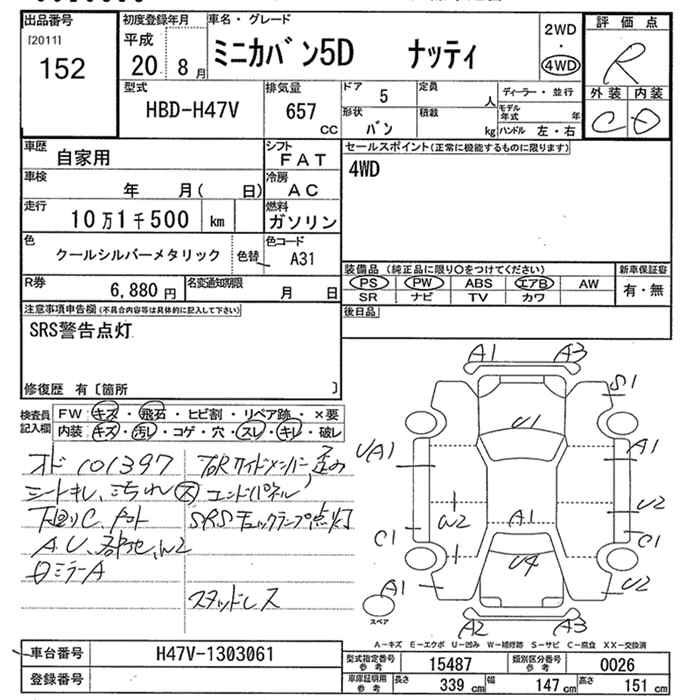 出品番号
[2011]
152
初度登録年月
平成
20 8月
車名・グレード
ミニカバン5D ナッティ
2WD
・
4WD
評価点
R
外装 内装
C D
型式
HBD-H47V
排気量
657
CC
ドア 5
定員 人
ディーラー・並行
モデル年式 年
形状 バン
積載 kg
ハンドル 左・右
車歴 自家用
シフト FAT
セールスポイント(正常に機能するものに限ります)
4WD
車検 年 月( 日)
冷房 AC
走行 10万1千500 km
燃料 ガソリン
色 クールシルバーメタリック 色替
色コード A31
R券 6,880円
名変通知期限 月 日
装備品 (純正品に限り○をつけてください)
新車保証書
PS PW ABS エアB AW
有・無
SR ナビ TV カワ
後日品
注意事項申告欄(不具合内容等は具体的に記入して下さい)
SRS警告点灯
修復歴 有〔箇所 〕
検査員記入欄
FW キズ・飛石・ヒビ割・リペア跡・×要
内装 キズ・汚レ・コゲ・穴・スレ・キレ・破レ
オド 101397
シートキレ、汚れ
下廻りC
A.U.
ミラーA
SRSチェックランプ点灯
スタッドレス
A1 A3
S1
U1
U(A1)
A1
W2
U2
A1
C1
C1
U4
A1
U2
A2 A3
スペア
A-キズ E-エクボ U-凹み W-補修跡 S-サビ C-腐食 XX-交換済
車台番号 H47V-1303061
登録番号
型式指定番号参考 15487
類別区分番号参考 0026
車庫証明用参考 長さ 339cm 幅 147cm 高さ 151cm